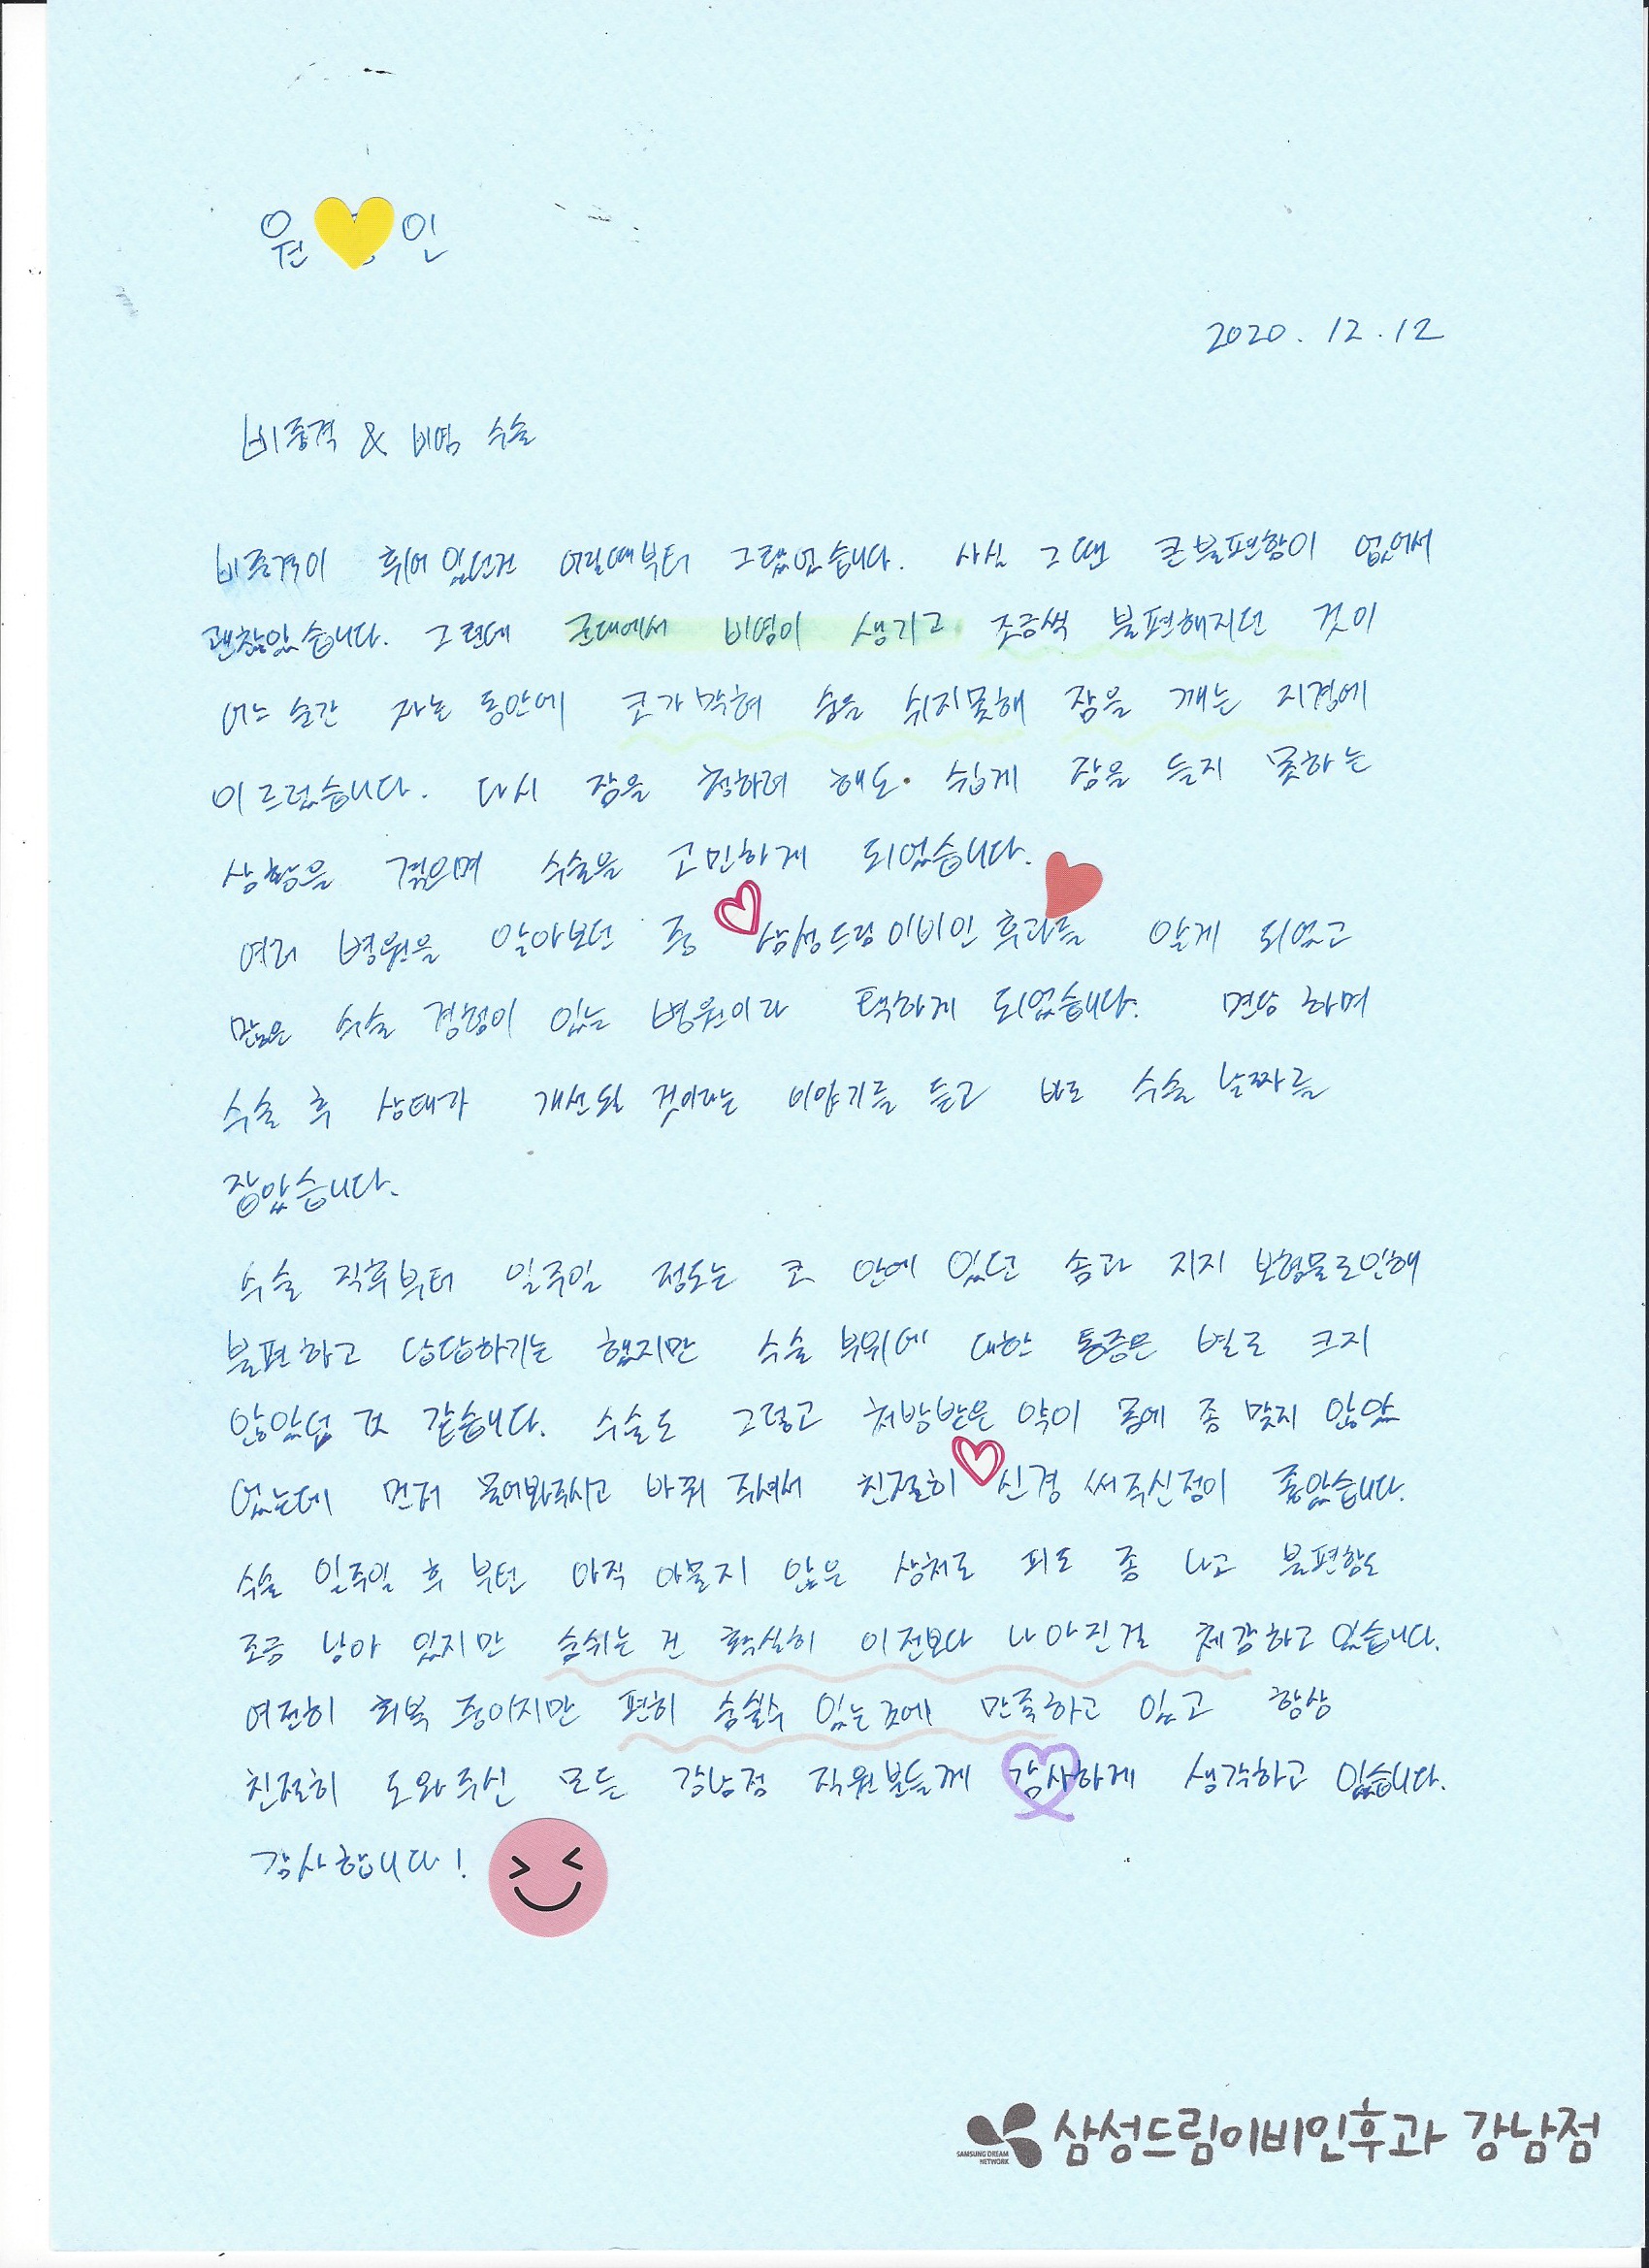 원 인
2020. 12. 12
비중격 & 비염 수술
비중격이 휘어 있던건 어릴때부터 그랬었습니다. 사실 그땐 큰불편함이 없어서
괜찮았습니다. 그런데 군대에서 비염이 생기고 조금씩 불편해지던 것이
어느 순간 자는 동안에 코가 막혀 숨을 쉬지못해 잠을 깨는 지경에
이르렀습니다. 다시 잠을 청하려 해도 쉽게 잠을 들지 못하는
상황을 겪으며 수술을 고민하게 되었습니다.
여러 병원을 알아보던 중 삼성드림이비인후과를 알게 되었고
많은 수술 경험이 있는 병원이라 택하게 되었습니다. 면담 하며
수술 후 상태가 개선될 것이라는 이야기를 듣고 바로 수술 날짜를
잡았습니다.
수술 직후부터 일주일 정도는 코 안에 있던 솜과 지지 보형물로인해
불편하고 답답하기는 했지만 수술 부위에 대한 통증은 별로 크지
않았던 것 같습니다. 수술도 그렇고 처방받은 약이 몸에 좀 맞지 않았
었는데 먼저 물어봐주시고 바꿔 주셔서 친절히 신경 써주신점이 좋았습니다.
수술 일주일 후 부턴 아직 아물지 않은 상처로 피도 좀 나고 불편함도
조금 남아 있지만 숨쉬는 건 확실히 이전보다 나아진걸 체감하고 있습니다.
여전히 회복 중이지만 편히 숨쉴수 있는것에 만족하고 있고 항상
친절히 도와주신 모든 강남점 직원분들께 감사하게 생각하고 있습니다.
감사합니다!
SAMSUNG DREAM
NETWORK
삼성드림이비인후과 강남점